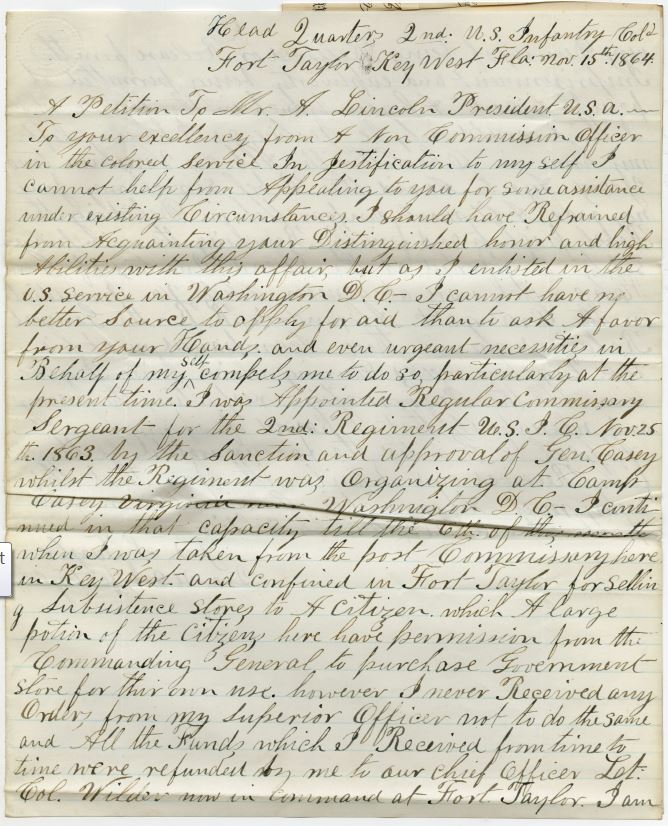 Head Quarters 2nd. U.S. Infantry Col'd
Fort Taylor Key West Fla: Nov. 15th. 1864.
A Petition To Mr. A. Lincoln President U.S.a.
To your excellency from A Non Commission Officer
in the colored Service In Jestification to my self I
cannot help from Appealing to you for some assistance
under existing Circumstances. I should have Refrained
from Acquainting your Distinguished honor and high
Abilities with this affair, but as I enlisted in the
U.S. Service in Washington D.C- I cannot have no
better Source to apply for aid than to ask A favor
from your Hands, and even urgeant necessities in
Behalf of my self compels me to do so, particularly at the
present time. I was Appointed Regular Commissary
Sergeant for the 2nd: Regiment U.S. I. C. Nov. 25
th. 1863. by the Sanction and approval of Gen. Casey
whilst the Regiment was Organizing at Camp
Casey Virginia near Washington D.C- I conti-
nued in that capacity till the 6th. of this month
when I was taken from the post Commissary here
in Key West. and confined in Fort Taylor for sellin
g Subsistence stores to A Citizen. which A large
potion of the Citizens here have permission from the
Commanding General to purchase Government
store for thir own use. however I never Received any
Orders from my Superior Officer not to do the same
and All the Funds which I Received from time to
time were refunded by me to our chief Officer Lgt.
Col. Wilder now in command at Fort Taylor. I am
t